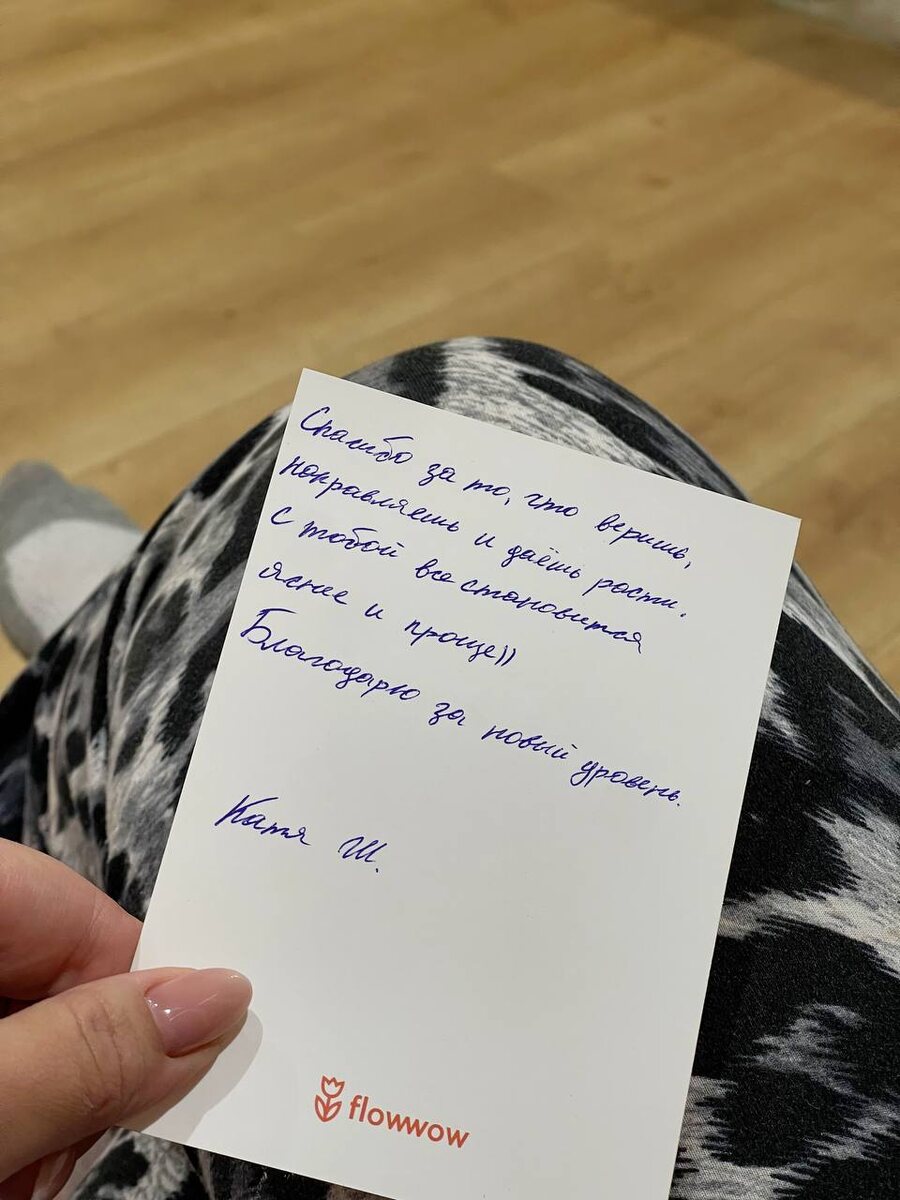 Спасибо за то, что веришь,
направляешь и даёшь расти.
с тобой все становится
яснее и проще))
Благодарю за новый уровень.
Катя Ш.
flowwow